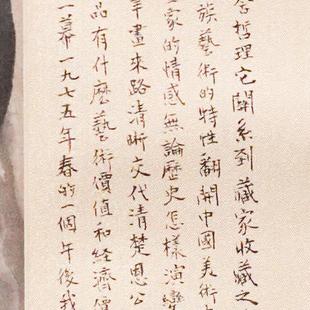 哲理它關系到藏家收藏之
族藝術的特性翻開中國美術
家的情感無論歷史怎樣演變
畫來路清晰交代清楚恩公
品有什麼藝術價值和經濟價
一幕一九七五年春的一個午後我